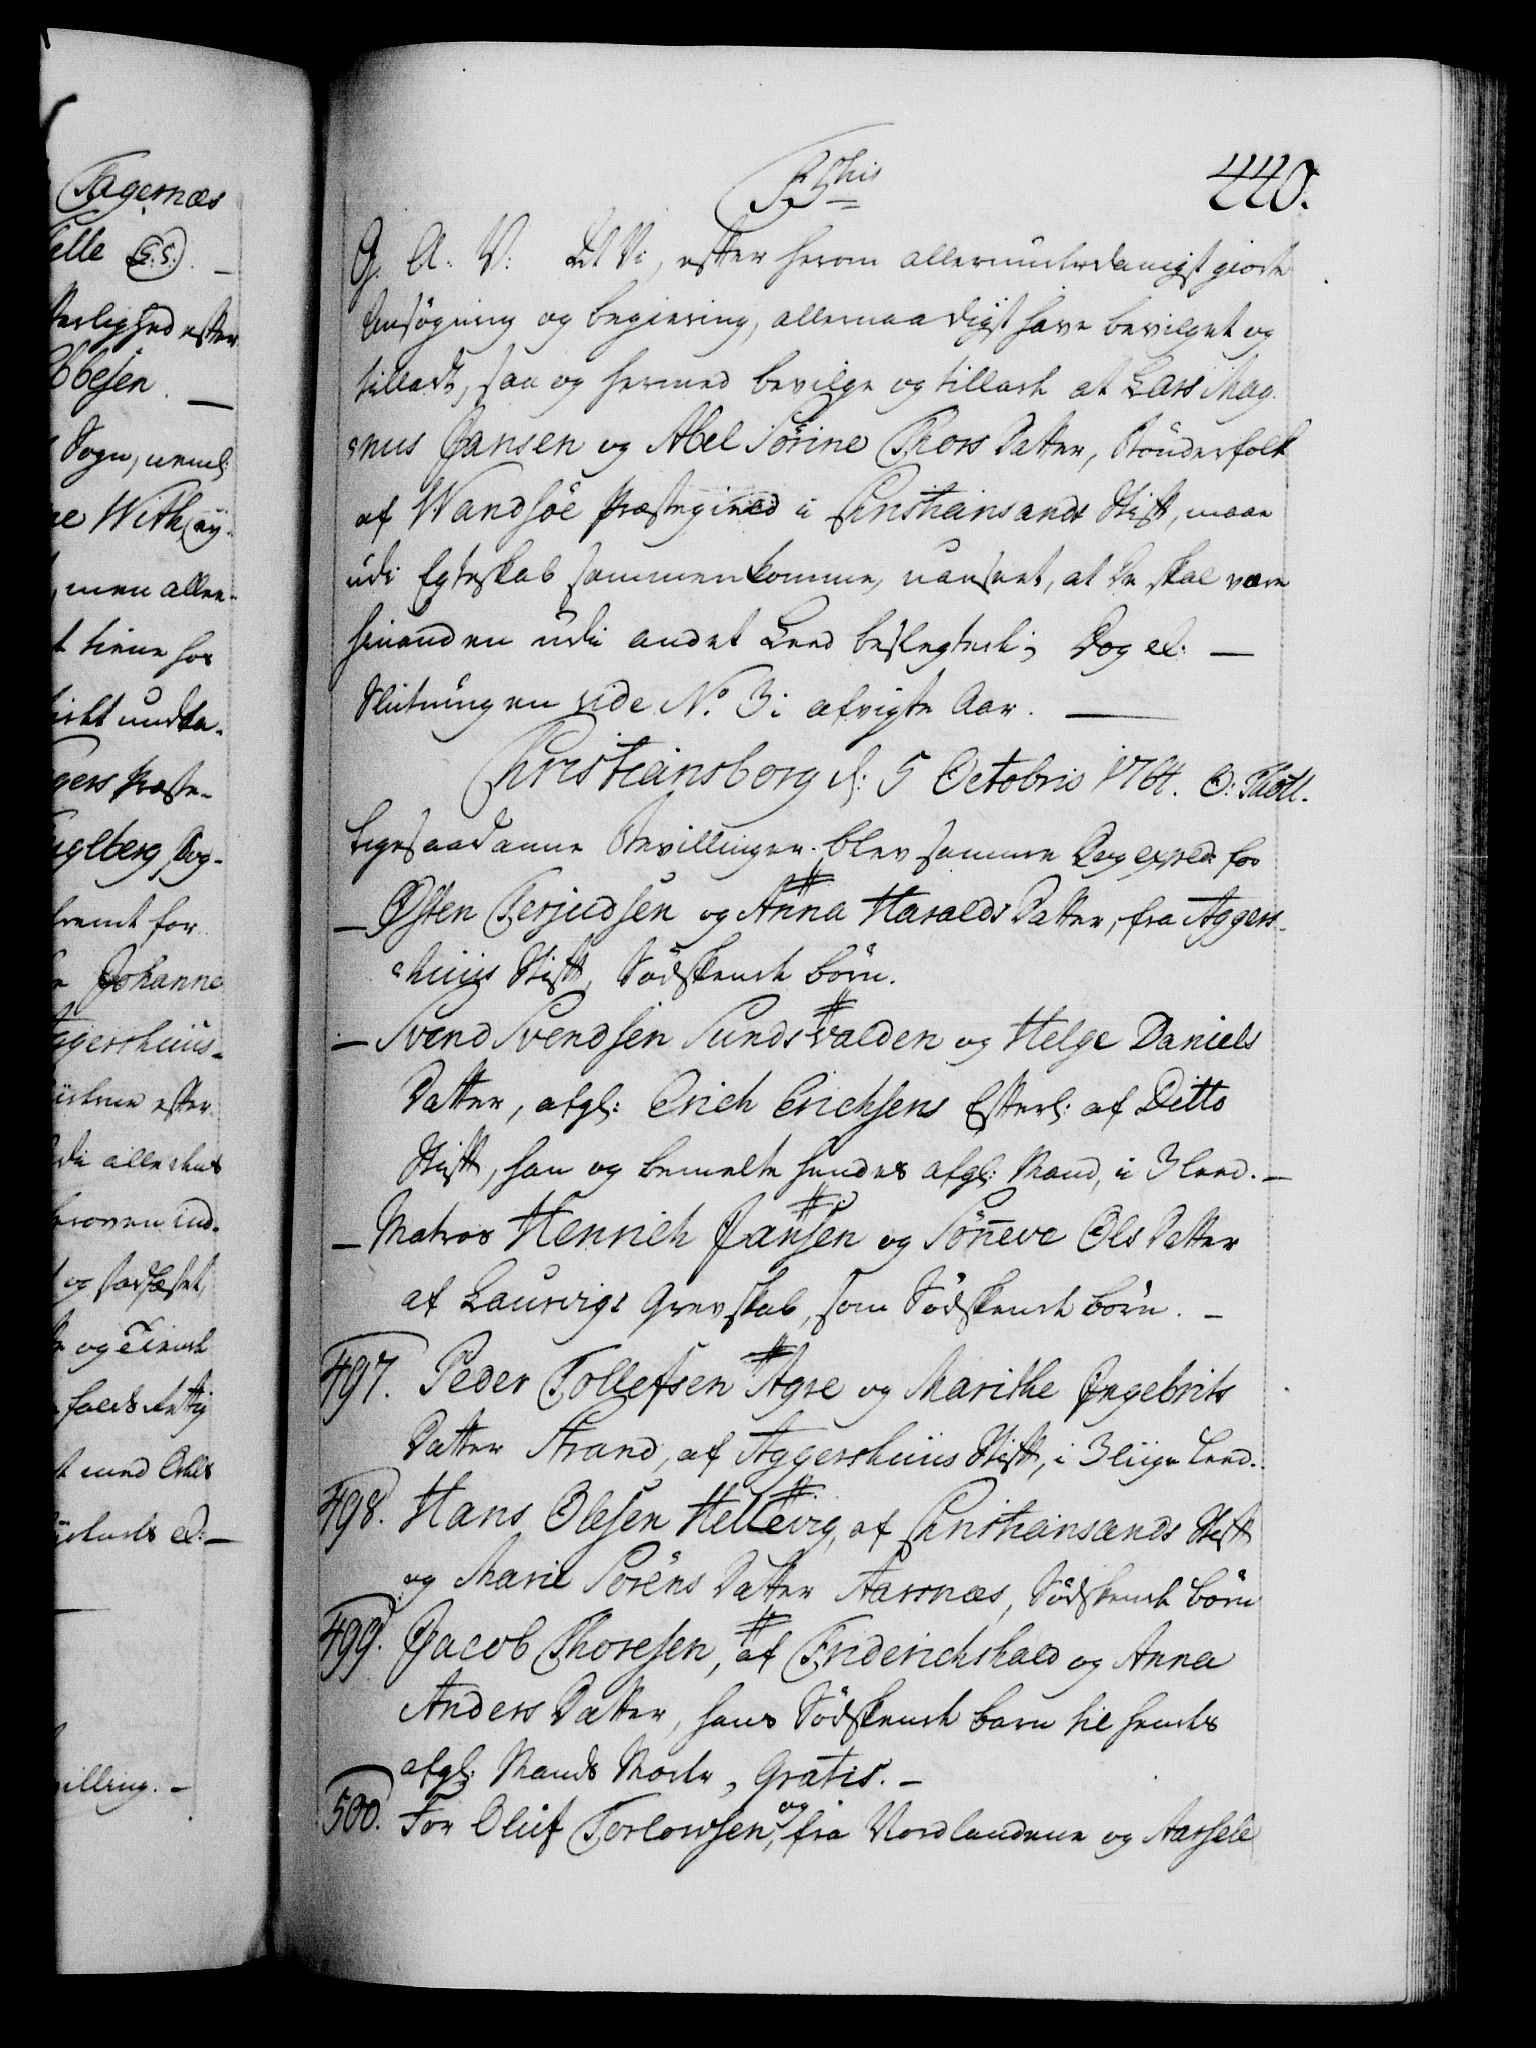 Fagernæs
elle (L: S:) –
erlighed efter
bbesen. –
Sogn, neml:
ne With, ey
, men aller-
t tiene hos
undta-
gers Præste-
uglberg, Dog-
fremt for
Johanne
ggershuus-
efter
di alle deres
ind-
og stadfæstet,
og Tiende
t med Eeds
el: –
villing. –
440.
F 5this
G. A. V: At Vi, efter herom allerunderdanigst giorte
Ansøgning og begiering, allernaadigst have bevilget og
tilladt, saa og hermed bevilge og tillade at Lars Mag-
nus Jansen og Abel Sørine Thors Datter, Bønderfolk
af Wandsøe Præstegield i Christiansands Stift, maae
udi Egteskab sammenkomme, uanseet, at De skal være
hinanden udi andet Leed beslegtede; Dog el: –
Slutningen vide No 3 i afvigte Aar. –
Christiansborg d: 5 Octobris 1764. O: Thott.
Ligesaadanne Bevillinger blev samme Dag exped: for
– Østen Terjudsen og Anna Haralds Datter, fra Aggers-
huus Stift, Sødskende børn.
– Svend Svendsen Sundsvalden og Helge Daniels
Datter, afgl: Erich Erichsens Efterl: af Ditto
Stift, han og bemelte hendes afgl: Mand, i 3 leed. –
– Matros Henrich Jansen og Sönneve Ols Datter
af Laurvigs Grevskab, som Sødskende børn. –
497. Peder Tollefsen Agre og Marithe Ingebrits
Datter Strand, af Aggershuus Stift, i 3 liige Leed.
498. Hans Olesen Hellevig, af Christiansands Stift
og Marie Sörens Datter Aarsnæs, Sødskende børn
499. Jacob Thoresen, af Friderichshald og Anna
Anders Datter, hans Sødskende barn til hendes
afgl: Mands Moder, Gratis. –
500. For Oluf Torlowsen, og fra Nordlandene og Aassele